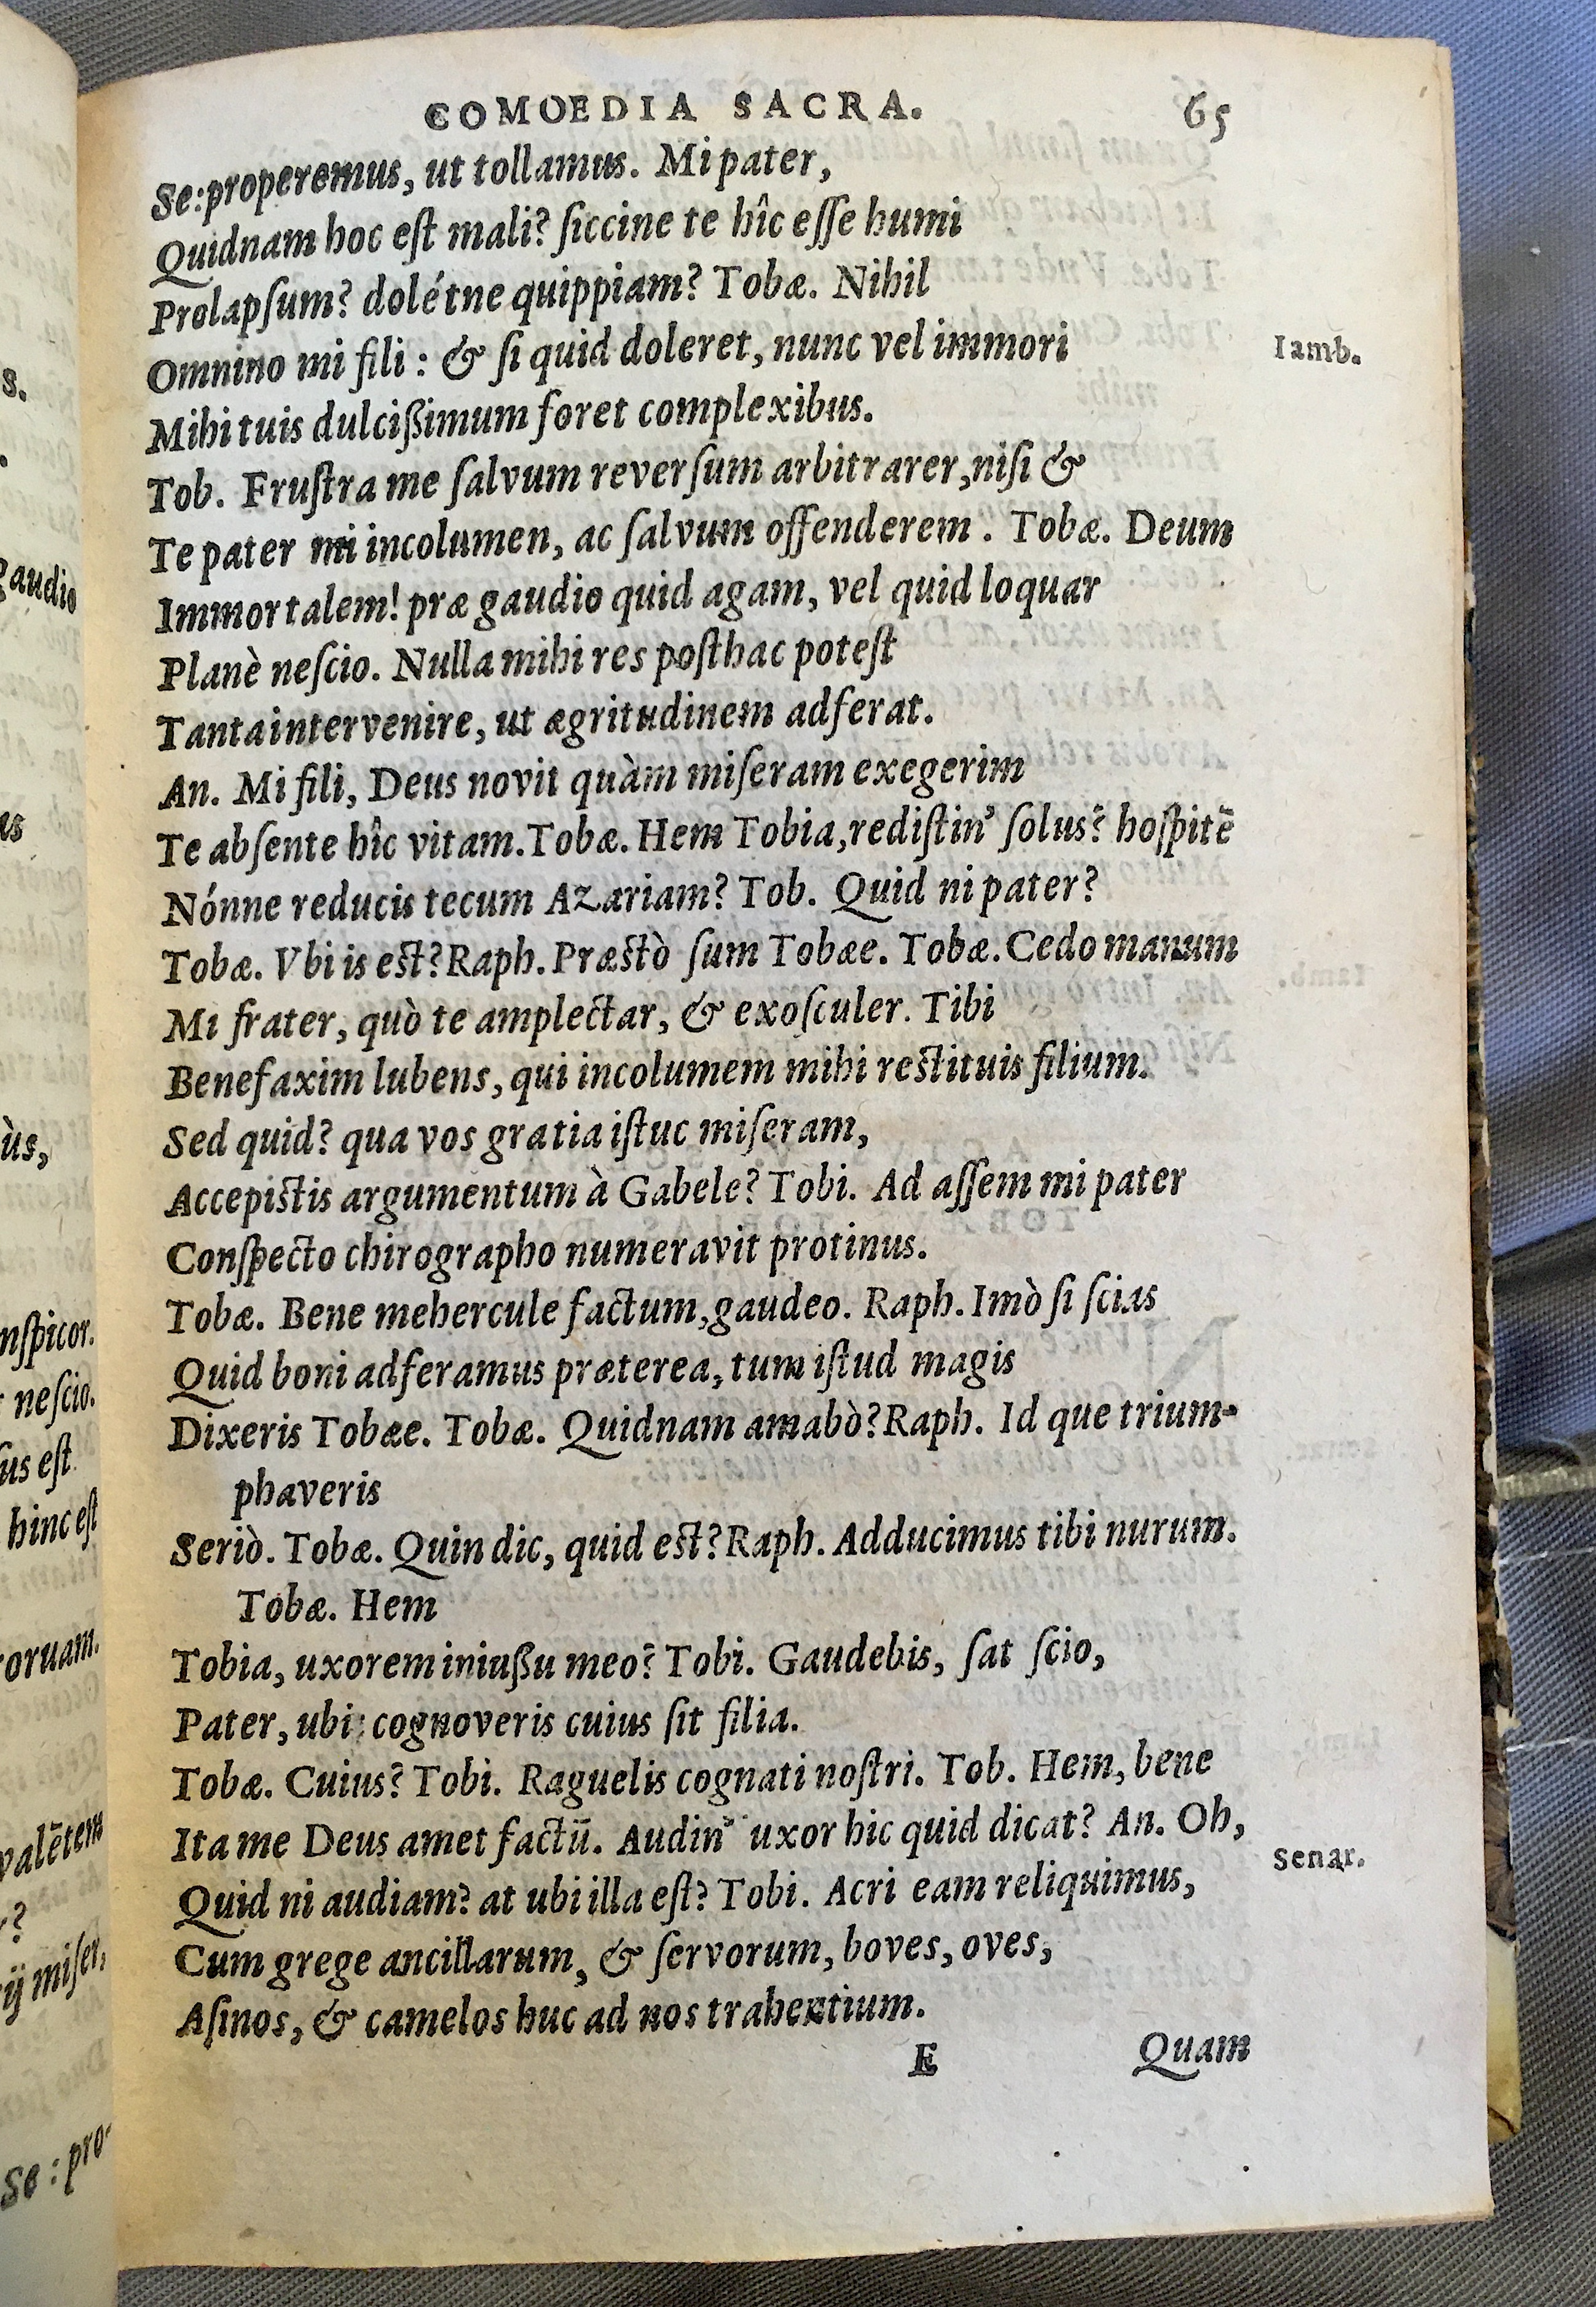 s.
.
gaudio
as
ùs,
nſpicor.
neſcio.
ſus eſt
hinc eſt
oruam.
valētem
?
ij miſer,
Se: pro-
COMOEDIA SACRA. 65
Se: properemus, ut tollamus. Mi pater,
Quidnam hoc eſt mali? ſiccine te hîc eſſe humi
Prolapſum? dolétne quippiam? Tobæ. Nihil
Omnino mi fili: & ſi quid doleret, nunc vel immori Iamb.
Mihi tuis dulcißimum foret complexibus.
Tob. Fruſtra me ſalvum reverſum arbitrarer, niſi &
Te pater mi incolumen, ac ſalvum offenderem. Tobæ. Deum
Immortalem! præ gaudio quid agam, vel quid loquar
Planè neſcio. Nulla mihi res poſthac poteſt
Tanta intervenire, ut ægritudinem adferat.
An. Mi fili, Deus novit quàm miſeram exegerim
Te abſente hîc vitam. Tobæ. Hem Tobia, rediſtin' ſolus? hoſpitē
Nónne reducis tecum Azariam? Tob. Quid ni pater?
Tobæ. Vbi is eſt? Raph. Præſtò ſum Tobæe. Tobæ. Cedo manum
Mi frater, quò te amplectar, & exoſculer. Tibi
Benefaxim lubens, qui incolumem mihi reſtituis filium.
Sed quid? qua vos gratia iſtuc miſeram,
Accepiſtis argumentum à Gabele? Tobi. Ad aſſem mi pater
Conſpecto chirographo numeravit protinus.
Tobæ. Bene mehercule factum, gaudeo. Raph. Imò ſi ſcias
Quid boni adferamus præterea, tum iſtud magis
Dixeris Tobæe. Tobæ. Quidnam amabò? Raph. Id que trium-
phaveris
Seriò. Tobæ. Quin dic, quid eſt? Raph. Adducimus tibi nurum.
Tobæ. Hem
Tobia, uxorem iniußu meo? Tobi. Gaudebis, ſat ſcio,
Pater, ubi cognoveris cuius ſit filia.
Tobæ. Cuius? Tobi. Raguelis cognati noſtri. Tob. Hem, bene
Ita me Deus amet factū. Audin' uxor hic quid dicat? An. Oh,
Quid ni audiam? at ubi illa eſt? Tobi. Acri eam reliquimus, Senar.
Cum grege ancillarum, & ſervorum, boves, oves,
Aſinos, & camelos huc ad nos trahentium.
E Quam